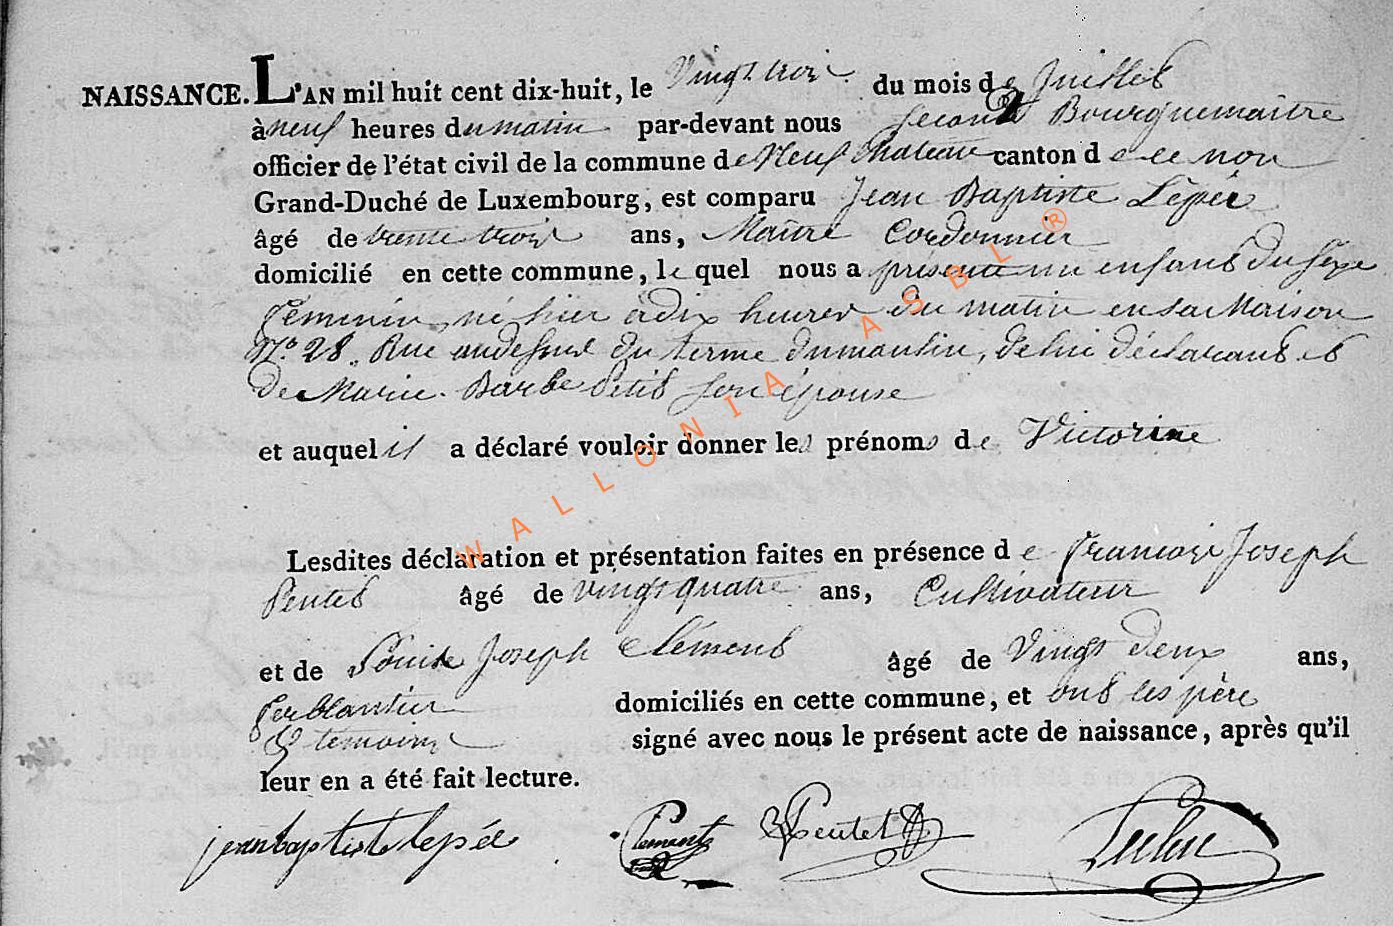 NAISSANCE. L'AN mil huit cent dix-huit, le Vingt trois du mois de Juillet
à neuf heures du matin par-devant nous second Bourguemaitre
officier de l'état civil de la commune de Neuf Chateau canton de ce nom
Grand-Duché de Luxembourg, est comparu Jean Baptiste Lépée
âgé de trente trois ans, Maitre Cordonnier
domicilié en cette commune, lequel nous a présenté un enfant du sexe
féminin, né hier à dix heures du matin en sa Maison
N.º 28. Rue au dessus du terme du moulin, de lui déclarant et
de Marie. Barbe Petit son épouse
et auquel il a déclaré vouloir donner les prénoms de Victorine
Lesdites déclaration et présentation faites en présence de Francois Joseph
Pentet âgé de vingt quatre ans, Cultivateur
et de Louis Joseph Clément âgé de Vingt deux ans,
ferblantier domiciliés en cette commune, et ont les père
& temoins signé avec nous le présent acte de naissance, après qu'il
leur en a été fait lecture.
jean baptiste lepée Clement Pentet
WALLONIA ASBL ®